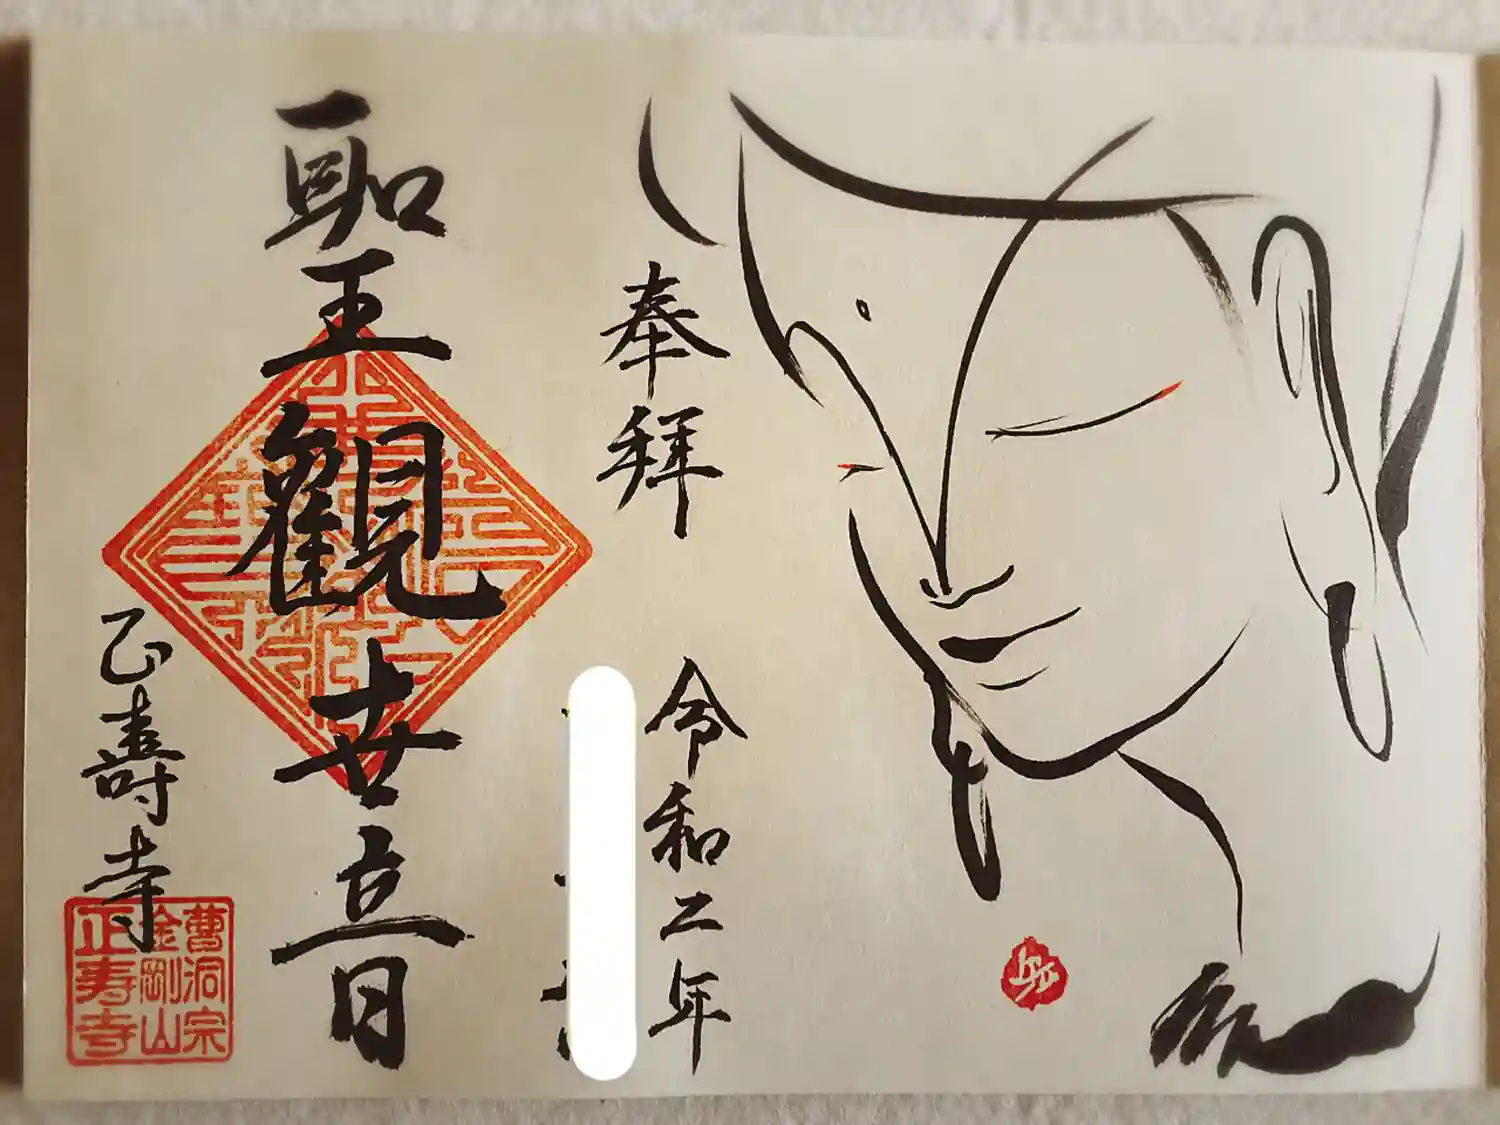 奉拝
令和二年
聖観世音
正壽寺
曹洞宗
金剛山
正寿寺